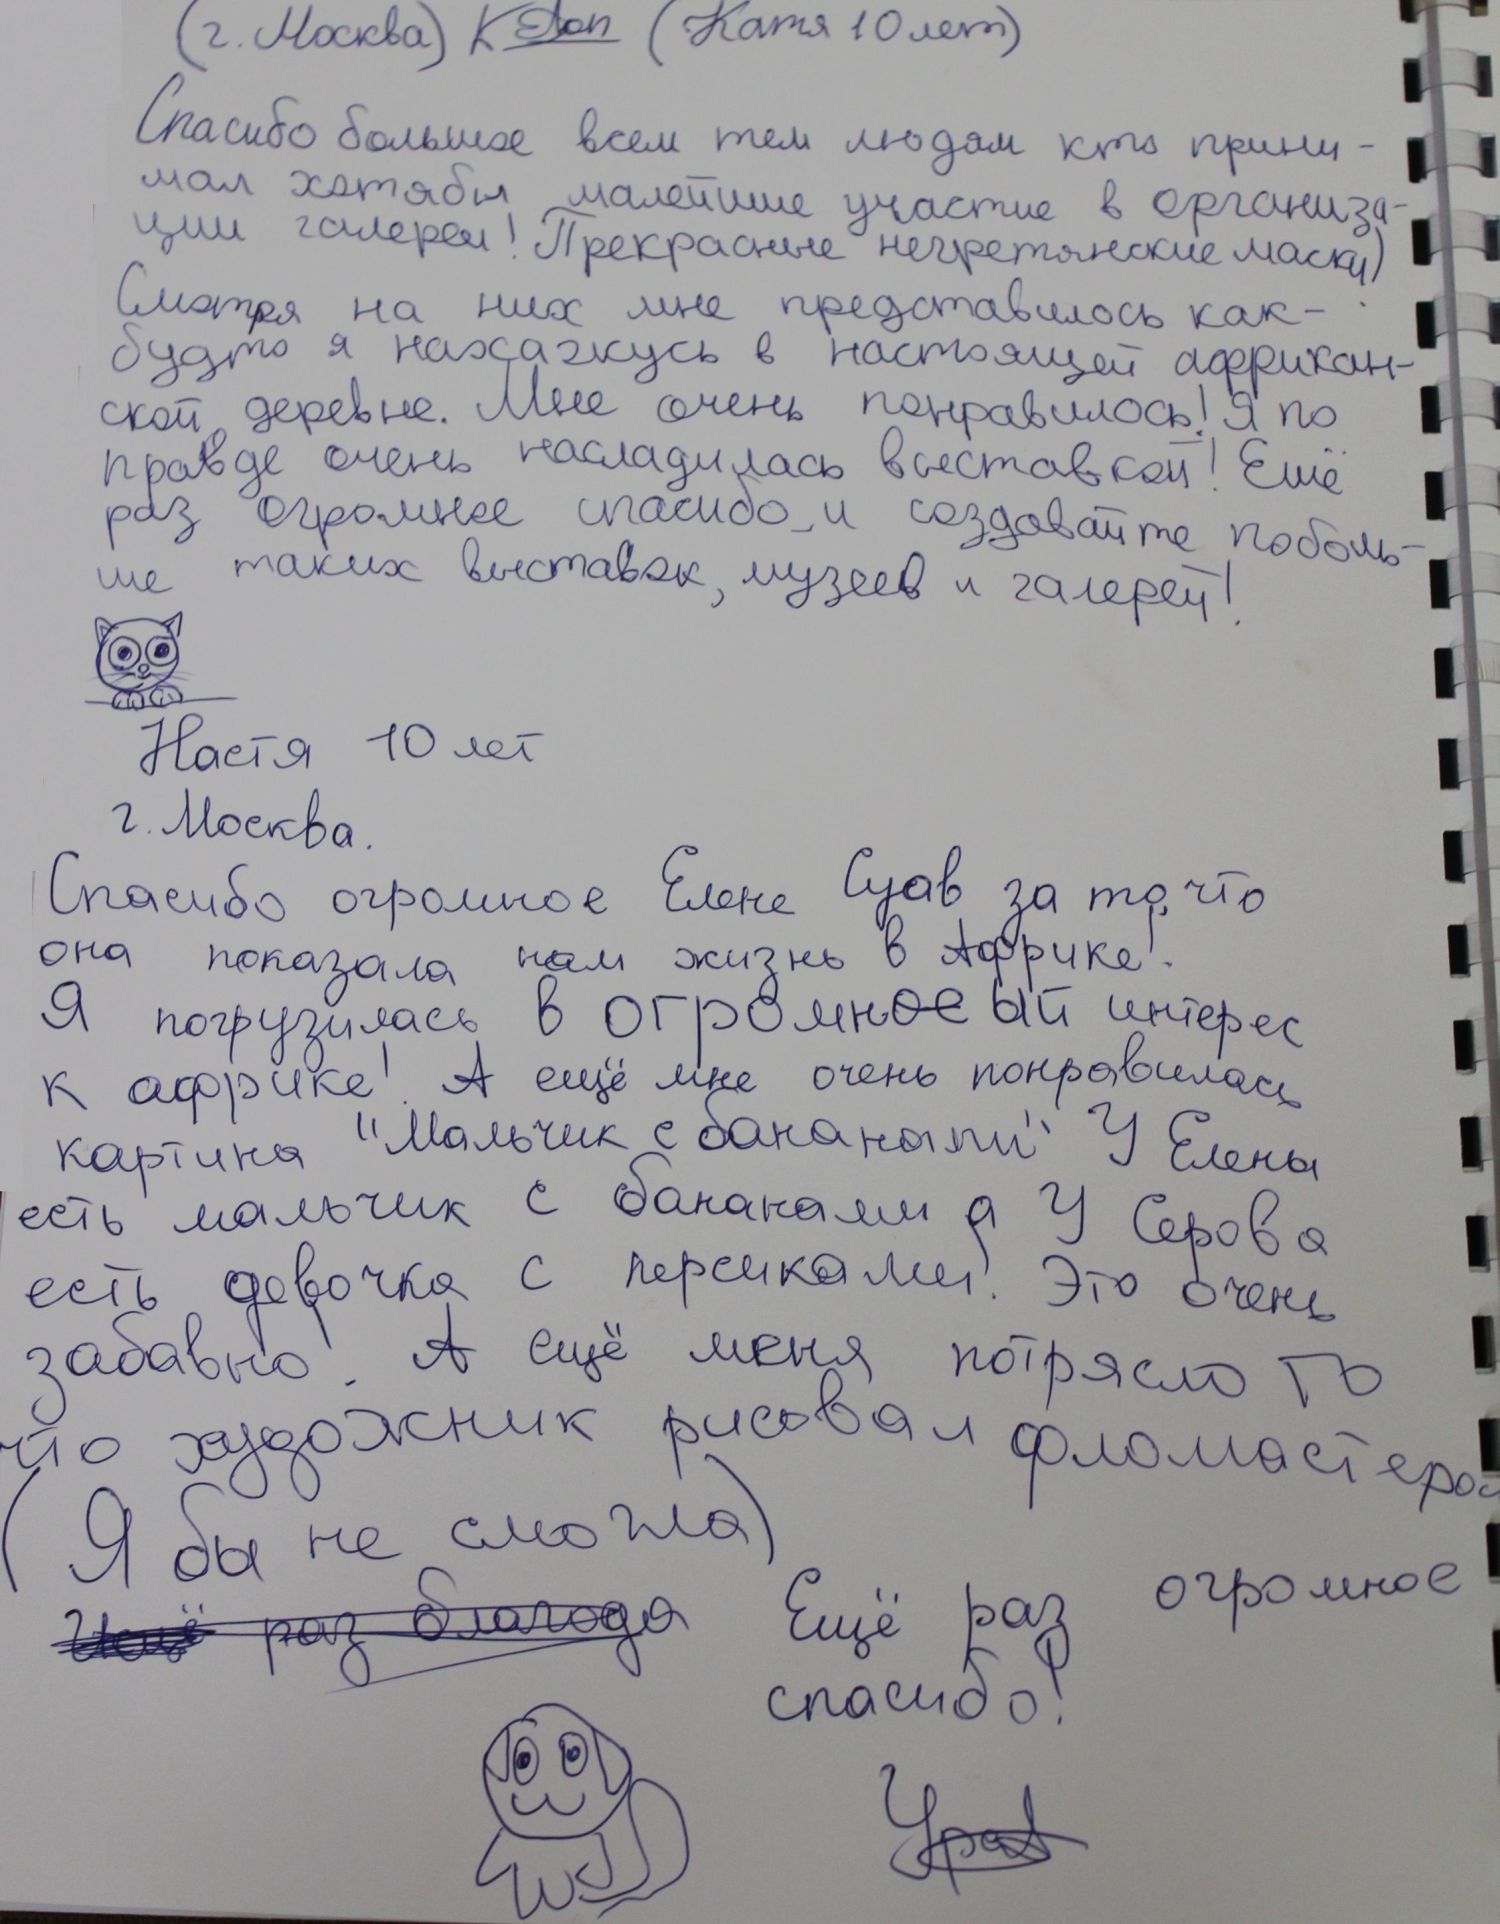 (г. Москва) (Катя 10 лет)
Спасибо большое всем тем людям кто прини-
мал хотябы малейшие участие в организа-
ции галереи! Прекрасные негретянские маски)
Смотря на них мне представилось как-
будто я нахажкусь в настоящей африкан-
ской деревне. Мне очень понравилось! Я по
правде очень насладилась выставкой! Ешё
раз огромное спасибо и создавайте поболь-
ше таких выставок, музеев и галерей!
Настя 10 лет
г. Москва.
Спасибо огромное Елене Суав за то, что
она показала нам жизнь в Африке!
Я погрузилась в огромноеый интерес
к африке! А ещё мне очень понравилась
картина "Мальчик с бананами" У Елены
есть мальчик с бананами а У Серова
есть девочка с персиками! Это очень
забавно! А ещё меня потрясло то
что художник рисовал фломастером
(Я бы не смогла)
раз благода Ещё раз огромное
спасибо!